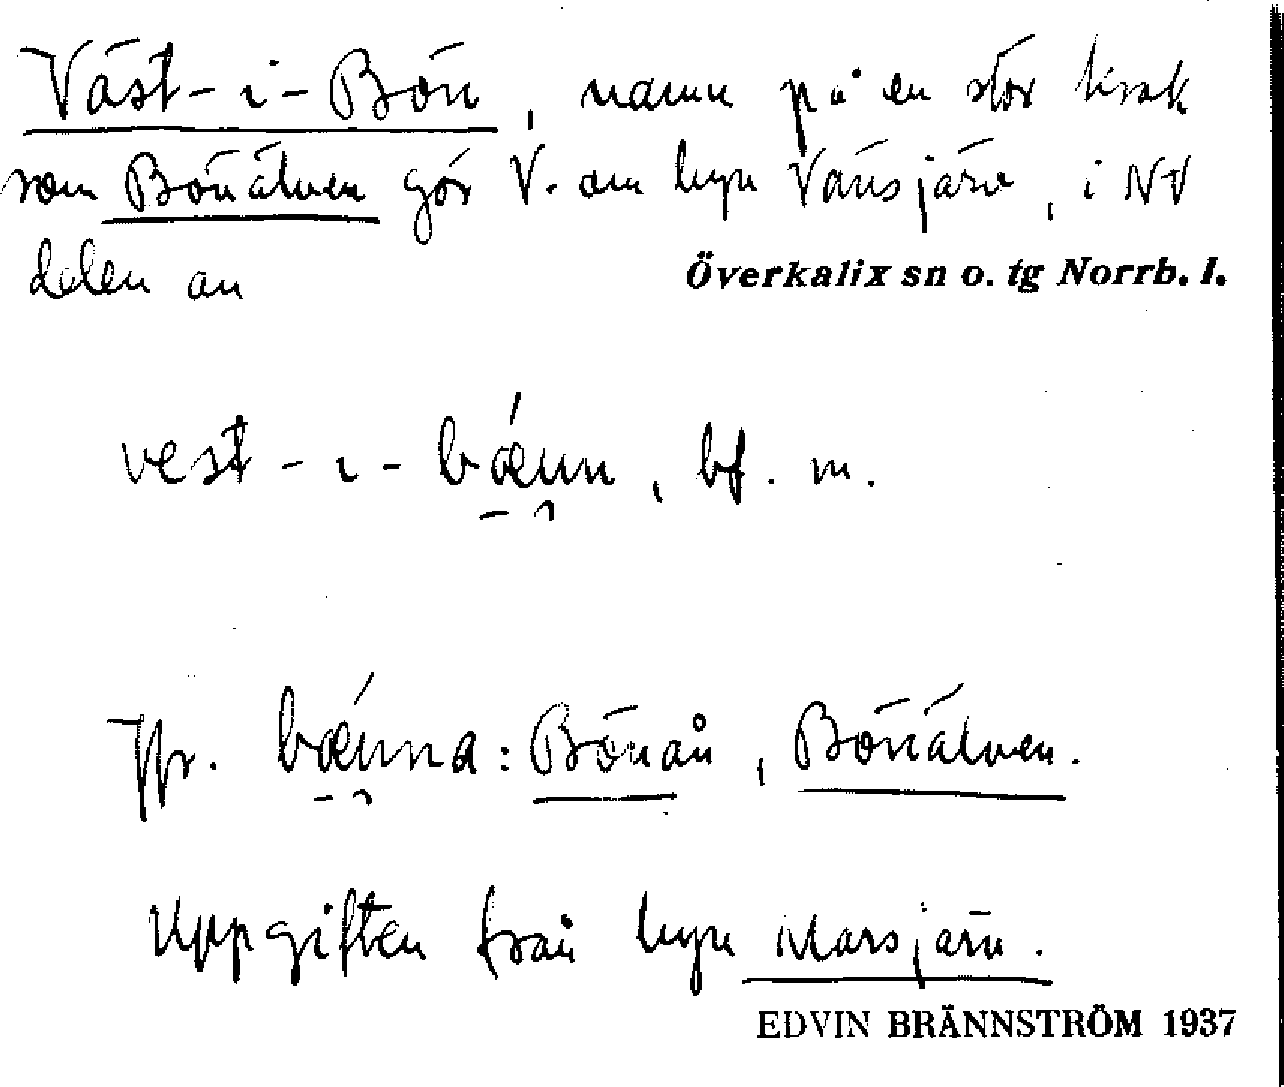 Väst-i-Bön, namn på en stor krok
som Bönälven gör V. om byn Vänsjärv, i NV
delen av
Överkalix sn o. tg Norrb. l.
vest-ı-bǽnn, bf. m.
Jfr. bǽnna: Bönån, Bönälven.
Uppgiften från byn Narsjärv.
EDVIN BRÄNNSTRÖM 1937